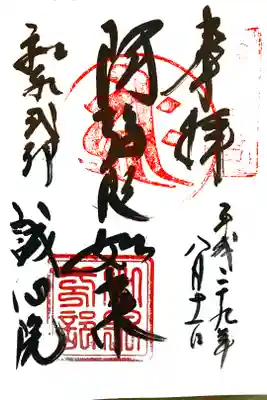 奉拝
平成二十九年
八月十一日
阿弥陀如来
和泉式部
誠心院